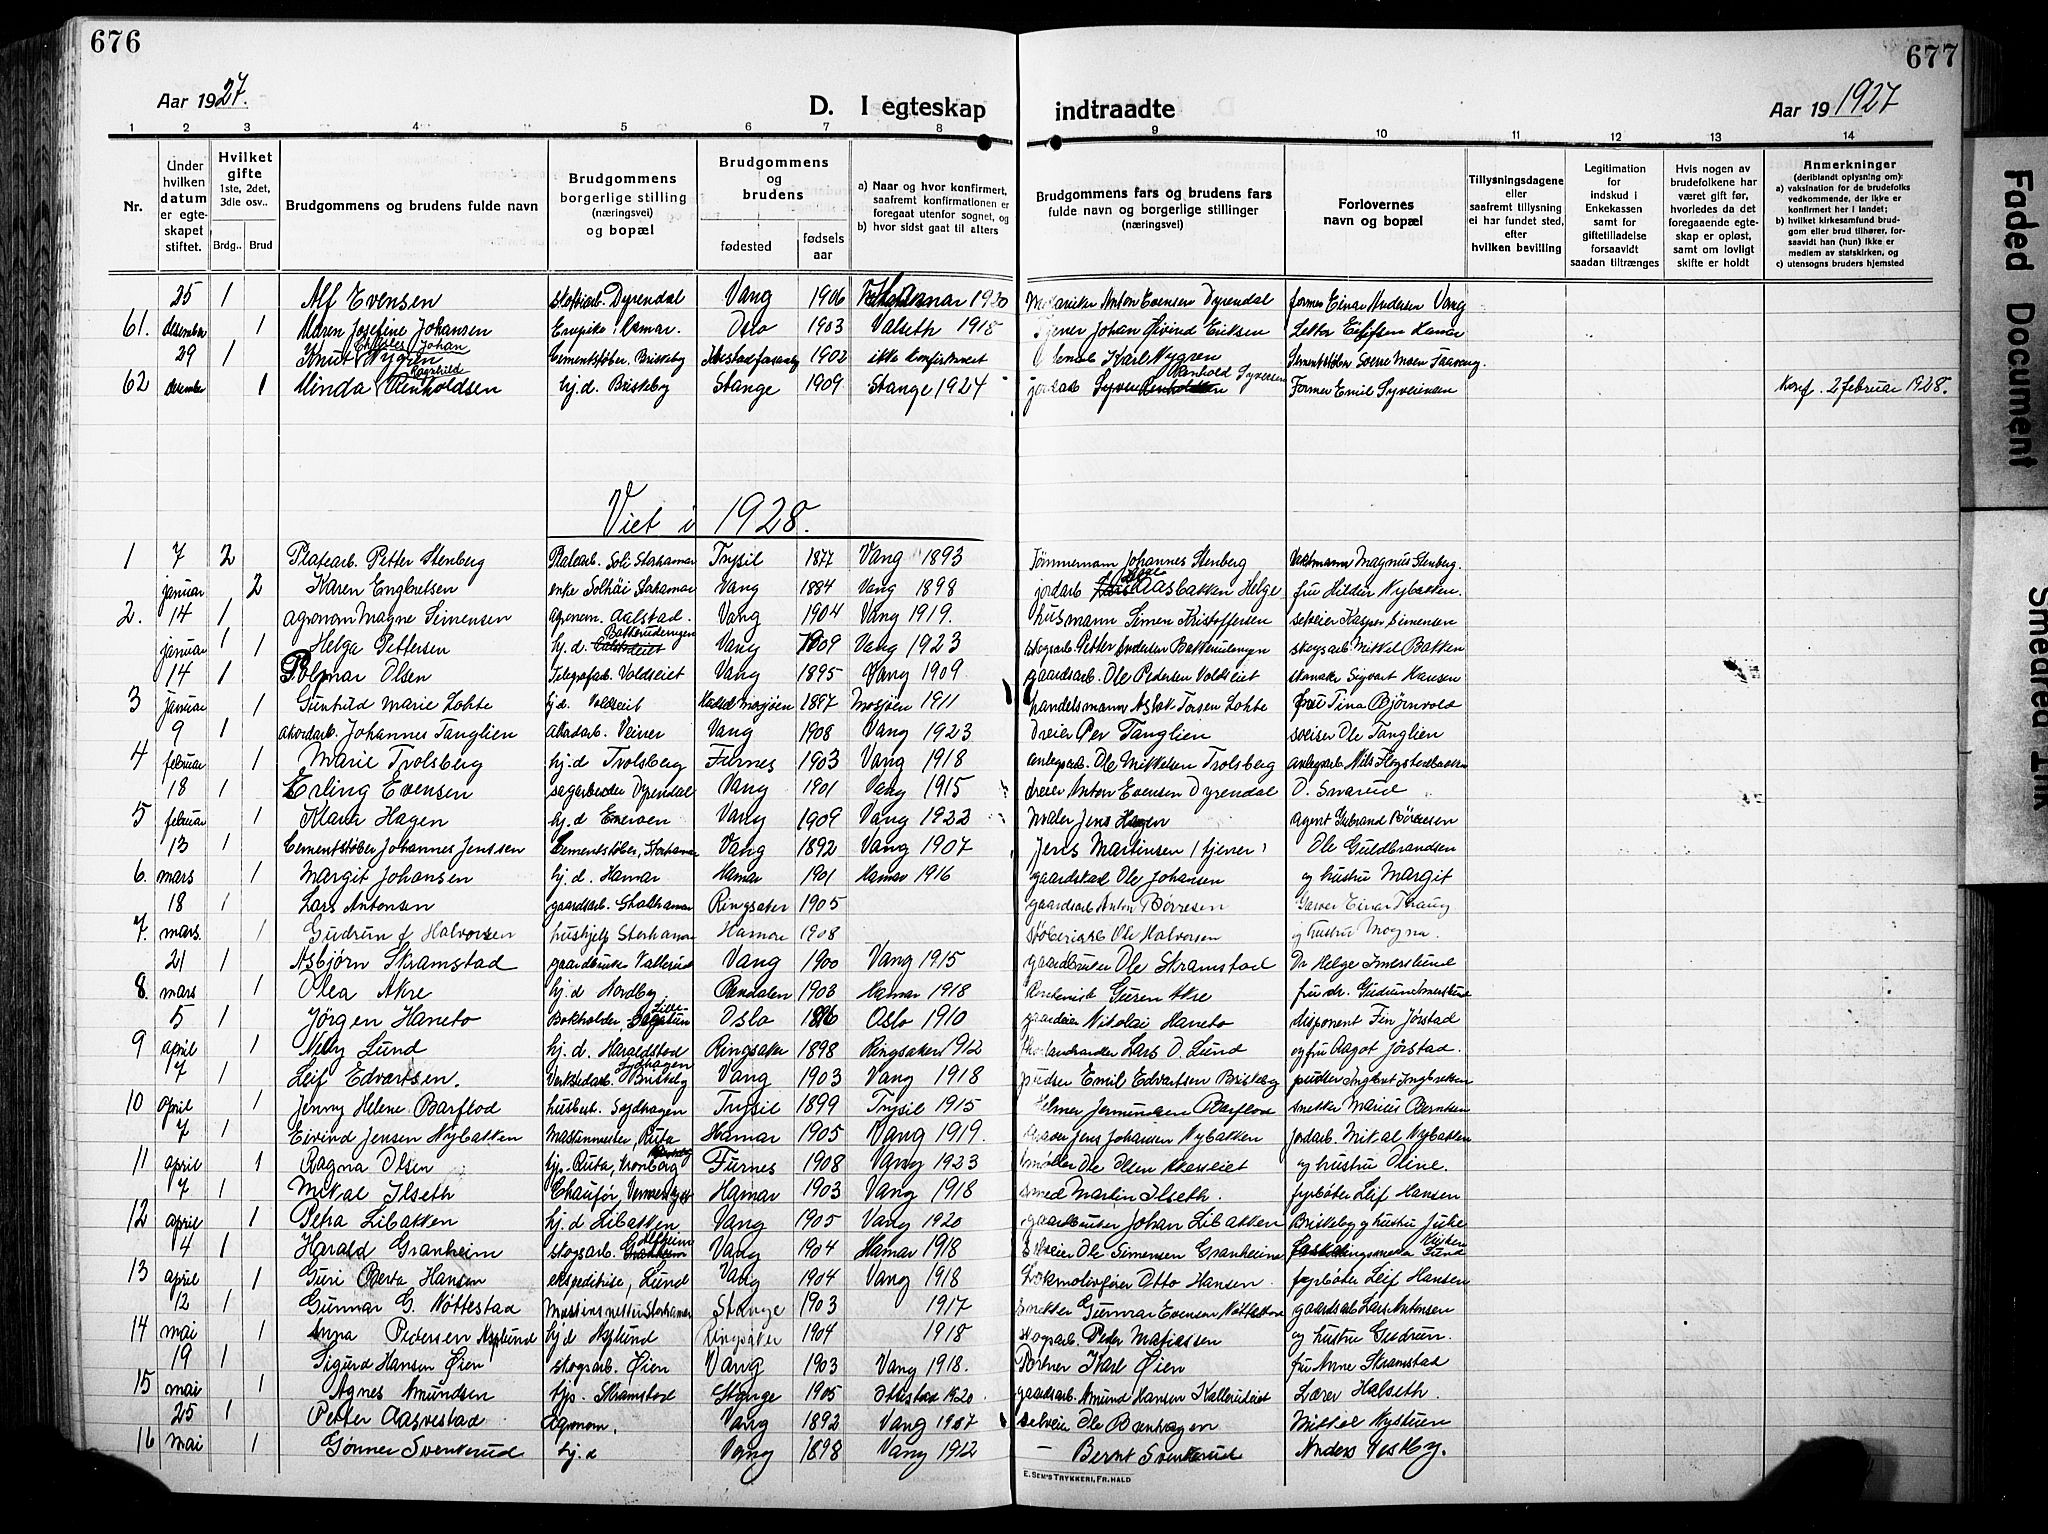 676
677
Aar 1927.
D. I egteskap
indtraadte
Aar 19 1927
1 2 3 4 5 6 7 8 9 10 11 12 13 14
Nr.
Under hvilken datum er egteskapet stiftet.
Hvilket gifte
1ste, 2det, 3die osv..
Brdg.. Brud
Brudgommens og brudens fulde navn
Brudgommens borgerlige stilling (næringsvei) og bopæl
Brudgommens og brudens
fødested
fødselsaar
a) Naar og hvor konfirmert, saafremt konfirmationen er foregaat utenfor sognet, og
b) hvor sidst gaat til alters
Brudgommens fars og brudens fars fulde navn og borgerlige stillinger (næringsvei)
Forlovernes navn og bopæl
Tillysningsdagene eller saafremt tillysning ei har fundet sted, efter hvilken bevilling
Legitimation for indskud i Enkekassen samt for giftetilladelse forsaavidt saadan tiltrænges
Hvis nogen av brudefolkene har været gift før, hvorledes da det foregaaende egteskap er opløst, samt om lovligt skifte er holdt
Anmerkninger
(deriblandt oplysning om):
a) vaksination for de brudefolks vedkommende, der ikke er konfirmert her i landet;
b) hvilket kirkesamfund brudgom eller brud tilhører, forsaavidt han (hun) ikke er medlem av statskirken, og
c) utensogns bruders hjemsted
25 1 Alf Evensen Dyrendal Vang 1906 Hamar 1920 Anton Evensen Dyrendal former Einar Andersen Vang
61. desember 1 Maren Josefine Johansen Oslo 1903 Valseth 1918 Johan Øivind Eriksen
29 1 Knut Charles Johan Nygren Cementstøber, Briskeby 1902 ikke konfirmeret Karl Nygren Cementstøber
62 desember 1 Minda Ragnhild Renholdsen hj.d. Briskeby Stange 1909 Stange 1924 Renhold Syversen Former Emil Syversen Konf. 2 februar 1928.
Viet i 1928.
1 7 2 Platearb. Petter Stenberg Platearb. Soli Storhamar Trysil 1877 Vang 1893 Tømmermann Johannes Stenberg Magnus Stenberg.
januar 2 Karen Engbretsen enke Solhøi Storhamar Vang 1884 Vang 1898 jordarb. Aasbakken Helge fru Hilda Nybakken.
2. 14 1 agronom Magne Simensen agronom. Aalstad. Vang 1904 Vang 1919. husmann Simen Kristoffersen selveier Kasper Simensen
januar 1 Helga Pettersen hj.d. Bakkerudengen Vang 1909 Vang 1923 skogsarb. Petter Andersen Bakkerudengen skogsarb. Mikkel Bakken
14 1 Polmar Olsen Telegrafarb. Voldseiet Vang 1895 Vang 1909 gaardsarb. Ole Pedersen Voldseiet Sigvart Hansen
3 januar 1 Gunhild Marie Lohte hj.d. Voldseiet Mosjøen 1897 Mosjøen 1911 handelsmann Aslak Torsen Lohte fru Tina Bjørnvold
9 1 akordarb. Johannes Tanglien akordarb. Veiner Vang 1908 Vang 1923 dreier Per Tanglien sveiser Ole Tanglien
4 februar 1 Marie Trolsberg hj.d Trolsberg Furnes 1903 Vang 1918 anlegsarb. Ole Mikkelsen Trolsberg anlegsarb. Nils
18 1 Erling Evensen sagarbeider Dyrendal Vang 1901 Vang 1915 dreier Anton Evensen Dyrendal O. Snarud
5 februar 1 Klara Hagen hj.d Eneroen Vang 1909 Vang 1923 Maler Jens Hagen agent Gubrand Børresen
13 1 Cementstøber Johannes Jenssen Cementstøber, Storhamar Vang 1892 Vang 1907 Jens Martinsen (tjener) Ole Guldbrandsen
6. mars 1 Margit Johansen hj.d. Hamar Hamar 1901 Hamar 1916 gaardskar Ole Johansen og hustru Margit
18 1 Lars Antonsen gaardsarb. Storhamar Ringsaker 1905 gaardsarb. Anton Børresen Garver Einar Thaug
7. mars. 1 Gudrun f Halvorsen hushjelp Storhamar Hamar 1908 Ole Halvorsen og hustru Mogna.
21 1 Asbjørn Skramstad gaardbruker Vang 1900 Vang 1915 gaardbruker Ole Skramstad Dr Helge Imerslund
8. mars 1 Olea Akre hj.d Nordby Rendalen 1903 Hamar 1918 Guren Akre fru dr. Gudrun Imerslund
5 1 Jørgen Haneto Bokholder, Oslo 1886 Oslo 1910 gaardeier Nikolai Haneto disponent Fin Jørstad
9 april 1 Nelly Lund hj.d. Haraldstad Ringsaker 1898 Ringsaker 1912 Lars O. Lund og fru Aagot Jørstad.
7 1 Leif Edvartsen. Verkstedarb. Briskeby Vang 1903 Vang 1918 pudser Emil Edvartsen Briskeby pudser Ingbret Ingbretsen
10 april 1 Jenny Helene Barflod husbest. Trysil 1899 Trysil 1915 Helmer Jermundsen Barflod snekker Marius Berntsen
7 1 Eivind Jensen Nybakken Ruta Hamar 1905 Vang 1919. Jens Johansen Nybakken Jordarb. Mikal Nybakken
11 april 1 Ragna Olsen hjp. Ruta, Kronborg Furnes 1908 Vang 1923 Ole Olsen og hustru Oline.
7 1 Mikal Ilseth Chaufør, Hamar 1903 Vang 1918 smed Martin Ilseth. fyrbøter Leif Hansen
12 april 1 Petra Libakken hj.d Libakken Vang 1905 Vang 1920 gaardbruker Johan Libakken Briskeby og hustru Julie
4 1 Harald Granheim skogsarb. Vang 1904 Hamar 1918 Selveier Ole Simensen Granheim
13 april 1 Guri Berta Hansen ekspeditrise, Lund Vang 1904 Vang 1918 Lokmotivfører Otto Hansen. fyrbøter Leif Hansen
12 1 Gunnar G. Nøttestad Storhamar Stange 1903 1917 snekker Gunnar Evensen Nøttestad gaardsarb. Lars Antonsen
14 mai 1 Anna Pedersen Asplund hj.d Asplund Ringsaker 1904 1918 skogsarb. Peder Matiassen og hustru Gudrun.
19 1 Sigurd Hansen Øien skogsarb. Øien Vang 1903 Vang 1918. Karl Øien fru Anne Skramstad
15 mai 1 Agnes Amundsen hjp. Skramstad Stange 1905 Ottestad 1920. gaardsarb. Amund Hansen Kallerudeiet Lærer Halseth.
25 1 Petter Aagvestad Agronom. Vang 1892 Vang 1907 selveier Ole Mikkel Nystuen
16 mai 1 Gønner Svenkerud hj.d Vang 1898 Vang 1912 — Bernt Svenkerud Anders Vestby.
E. SEM'S TRYKKERI, FR.HALD
Faded Document
Smeared Ink